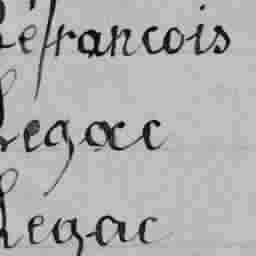 Lefrancois
Legac
Legac